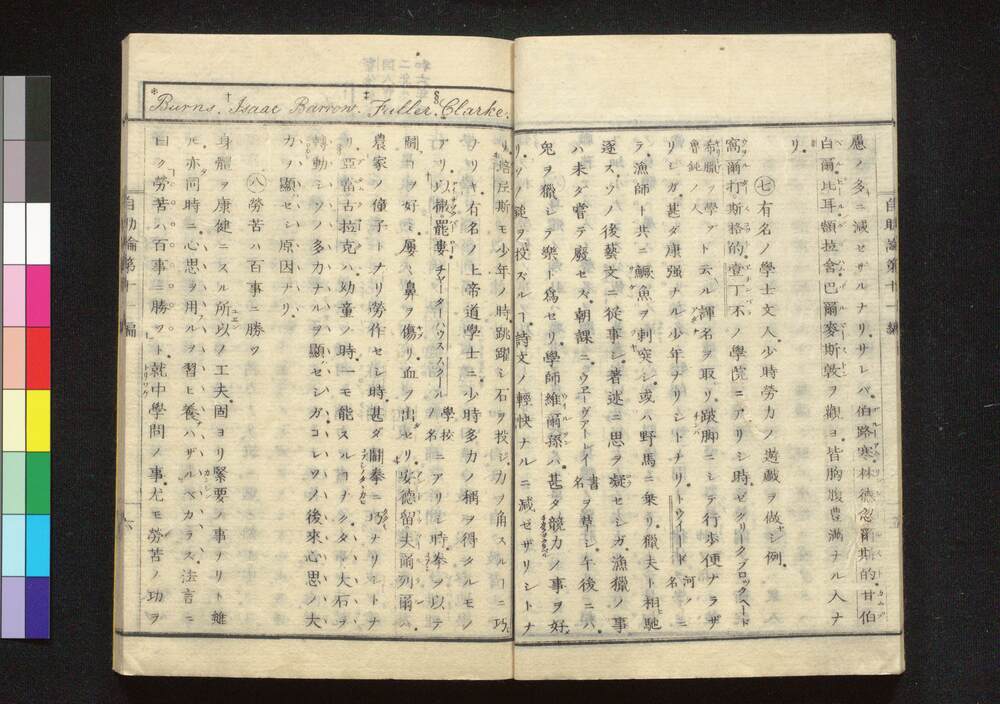 愚ノ多ニ減セザルナリ.サレバ.伯路塞林德忽爾斯的甘伯
白爾比耳.頓拉會巴爾麥斯敦ヲ觀ヨ.皆胸腹豊滿ナル人ナ
リ.
㊆有名ノ學士文人.少時勞力ノ遊戯ヲ做シ例.
窩爾打斯格的壹丁不ノ學院ニアリシ時.ゼグリークブロックヘード
希臘ヲ學ブ魯鈍ノ人ト云ル諢名ヲ取リ.跛脚ニシテ行歩便ナラザ
リシガ.甚ダ康强ナル少年ナリシトナリ.トウイード河ノ名ニ
テ漁師ト共ニ鱖魚ヲ刺突シ.或ハ野馬ニ乗リ.獵夫ト相馳
逐ス.ソノ後藝文ニ從事シ.著述ニ思ヲ凝セシガ.漁獵ノ事
ハ未ダ嘗テ廢セズ.朝課ニウエーヴアトレイ書名ヲ草シ.午後ニハ
兎ヲ獵シテ樂ト爲セリ.學師維爾孫ハ甚ダ競力ノ事ヲ好
リ.鎚ヲ投ズルヿ.詩文ノ輕快ナルニ減ゼザリシトナ
Burns. Isaac Barrow. Fuller. Clarke.
リ.培尼斯モ少年ノ時.跳躍シ石ヲ投ジ.力ヲ角スルヿニ巧
ナリキ.有名ノ上帝道學士ニ.少時多力ノ稱ヲ得タルモノ
アリ.以撒罷婁チャーターハウススクール學校ノ名ニアリシ時.拳ヲ以テ
鬪フヿヲ好ミ.屢〻鼻ヲ傷リ血ヲ出セリ.安德留夫爾列爾ハ
農家ノ僮子トナリ勞作セシ時.甚ダ鬪拳ニ巧ナリシトナ
リ.亞當古拉克ハ幼童ノ時.一モ能スルヿナク.タヾ大石ヲ
轉動シ.ソノ多力ナルヲ顯セシガ.コレソノ後來心思ノ大
力ヲ顯セシ原因ナリ.
㊇勞苦ハ百事ニ勝ツ
身體ヲ康健ニスル所以ノ工夫.固ヨリ緊要ノ事ナリト雖
𪜈.亦同時ニ心思ヲ用ルヲ習ヒ養ハザルベカラズ.法言ニ
曰ク.「勞苦ハ百事ニ勝ツ」ト.就中學問ノ事.尤モ勞苦ノ功ヲ
自助論第十一編
六